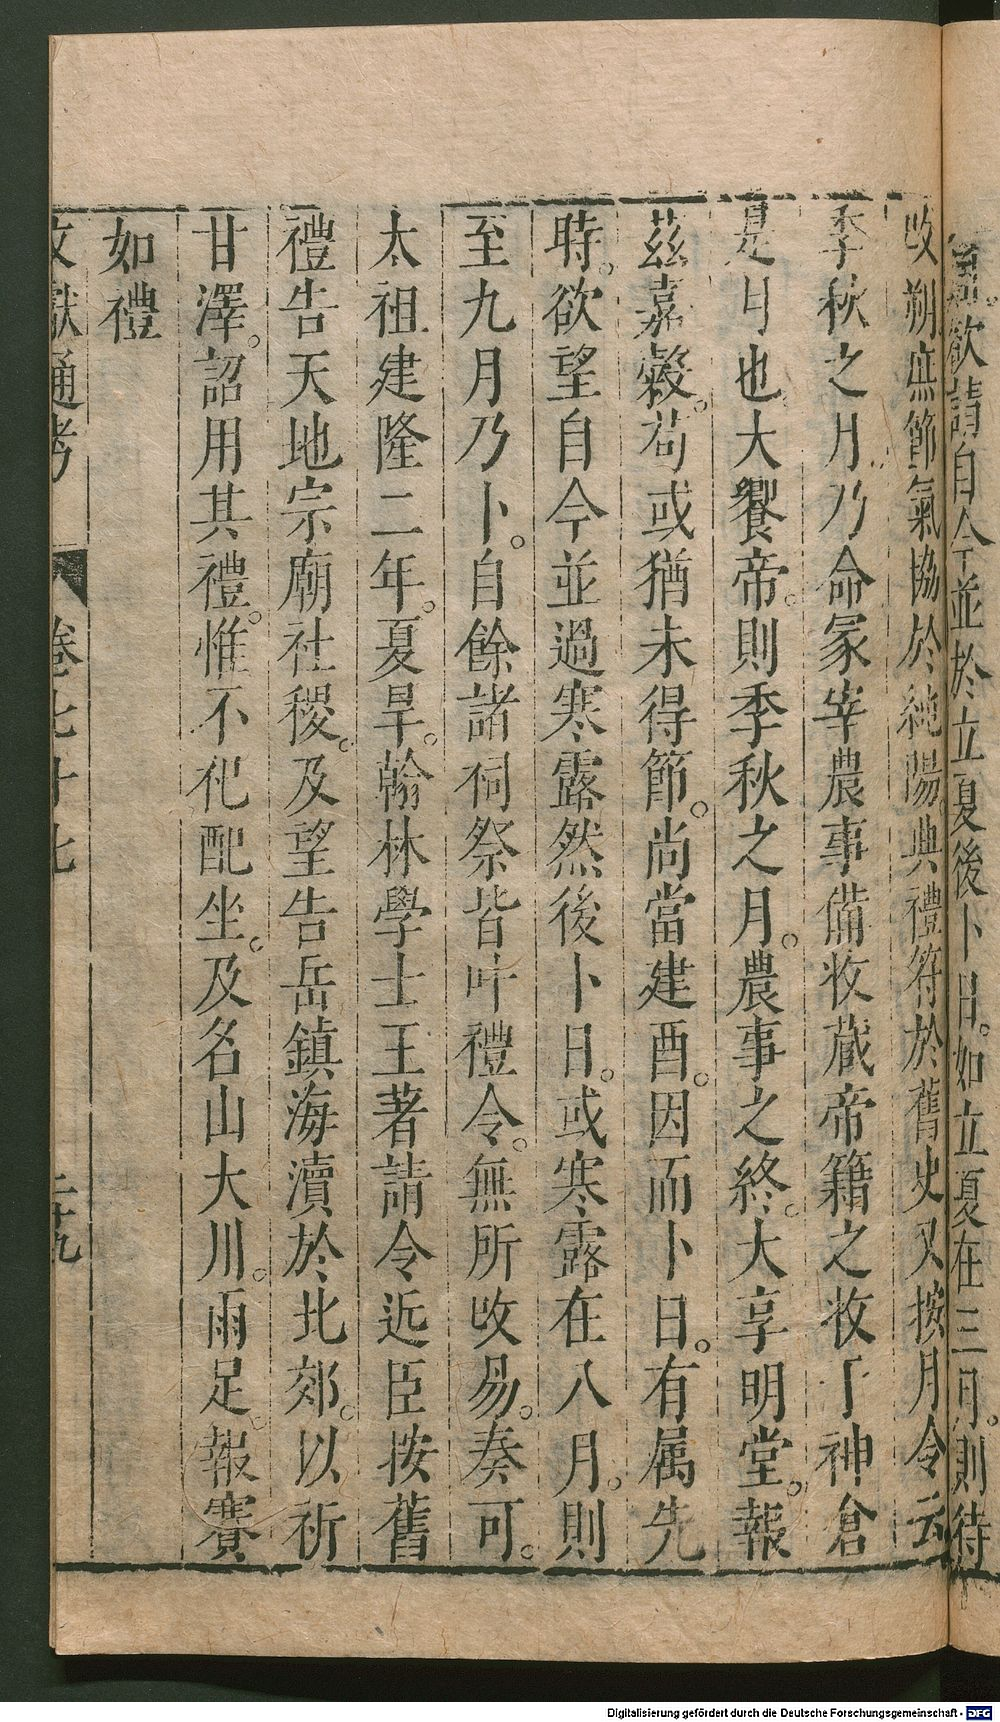 氣。欲請自今並於立夏後卜日。如立夏在三月。則待
改朔庶節氣協於純陽。典禮符於舊史又按月令云
季秋之月乃命冢宰農事備收藏帝籍之收于神倉
是月也大饗帝。則季秋之月。農事之終。大享明堂。報
茲嘉穀。苟或猶未得節。尚當建酉。因而卜日。有属先
時。欲望自今並過寒露然後卜日。或寒露在八月。則
至九月乃卜。自餘諸祠祭皆叶禮令。無所改易。奏可。
太祖建隆二年。夏旱。翰林學士王著請令近臣按舊
禮告天地宗廟社稷。及望告岳鎮海瀆於北郊。以祈
甘澤。詔用其禮。惟不祀配坐。及名山大川。雨足。報賽
如禮
文獻通考 卷七十七 二十九
Digitalisierung gefördert durch die Deutsche Forschungsgemeinschaft - DFG